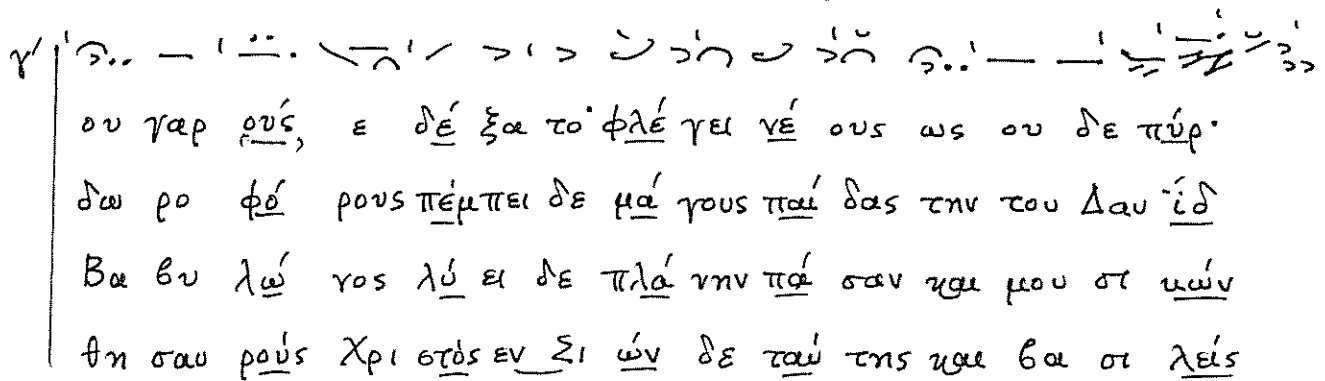 γ'
ου γαρ ούς, ε δέ ξα το· φλέ γει νέ ους ως ου δε πύρ·
δω ρο φό ρους πέμπει δε μά γους παί δας την του Δαυ ίδ
Βα βυ λώ νος λύ ει δε πλά νην πά σαν και μου σι κών
θη σαυ ρούς Χρι στός εν Σι ών δε ταύ της και βα σι λείς